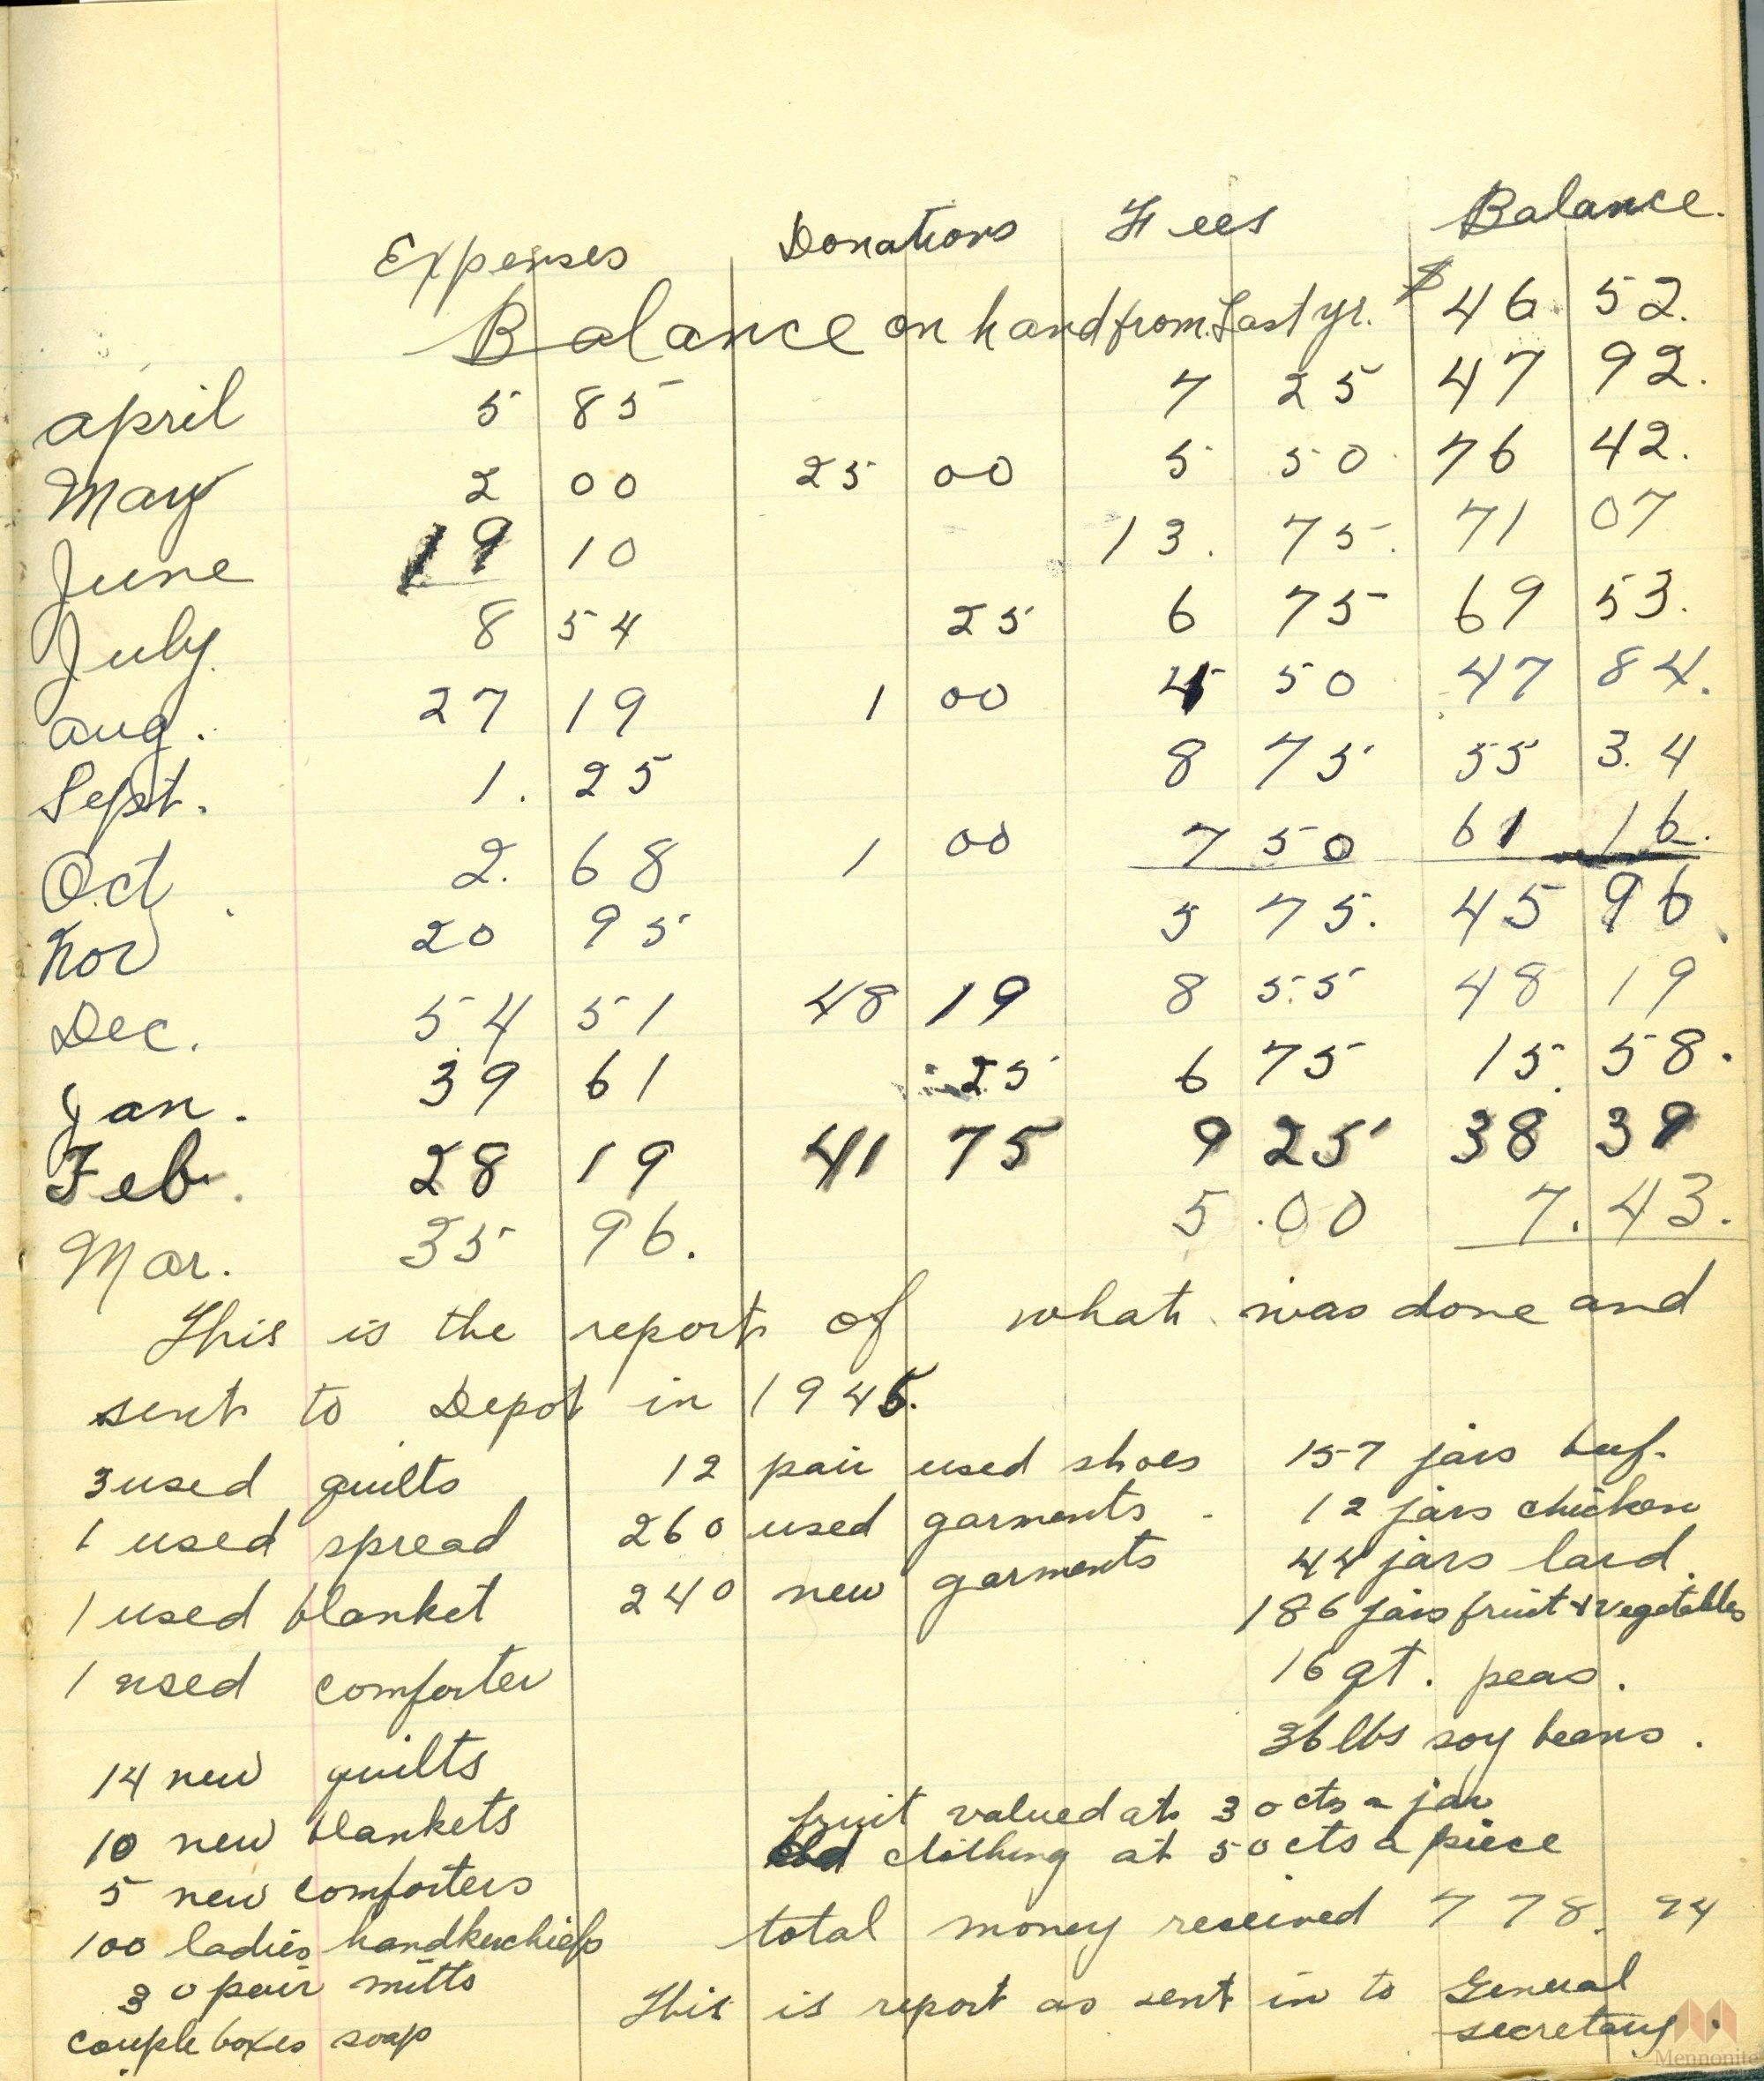 Expenses Donations Fees Balance.
Balance on hand from Last yr. $46 52.
April 5 85 7 25 47 92.
May 2 00 25 00 5 50 76 42.
June 19 10 13. 75. 71 07
July 8 54 25 6 75 69 53.
Aug. 27 19 1 00 4 50 47 84.
Sept. 1. 25 8 75 55 3.4
Oct. 2. 68 1 00 7 50 61 16.
Nov 20 95 5 75. 45 96
Dec. 54 51 48 19 8 55 48 19
Jan. 39 61 25 6 75 15. 58.
Feb. 28 19 41 75 9 25 38 39
Mar. 35 96. 5.00 7.43.
This is the report of what was done and
sent to Depot in 1945.
3 used quilts 12 pair used shoes 157 jars beef.
1 used spread 260 used garments. 12 jars chicken
1 used blanket 240 new garments 44 jars lard.
186 jars fruit & vegetables
1 used comforter 16 qt. peas.
36 lbs soy beans.
14 new quilts
10 new blankets fruit valued at 30 cts a jar
clothing at 50 cts a piece
5 new comforters
100 ladies handkerchiefs total money received 778.94
30 pair mitts
This is report as sent in to General
couple boxes soap secretary.
Mennonite